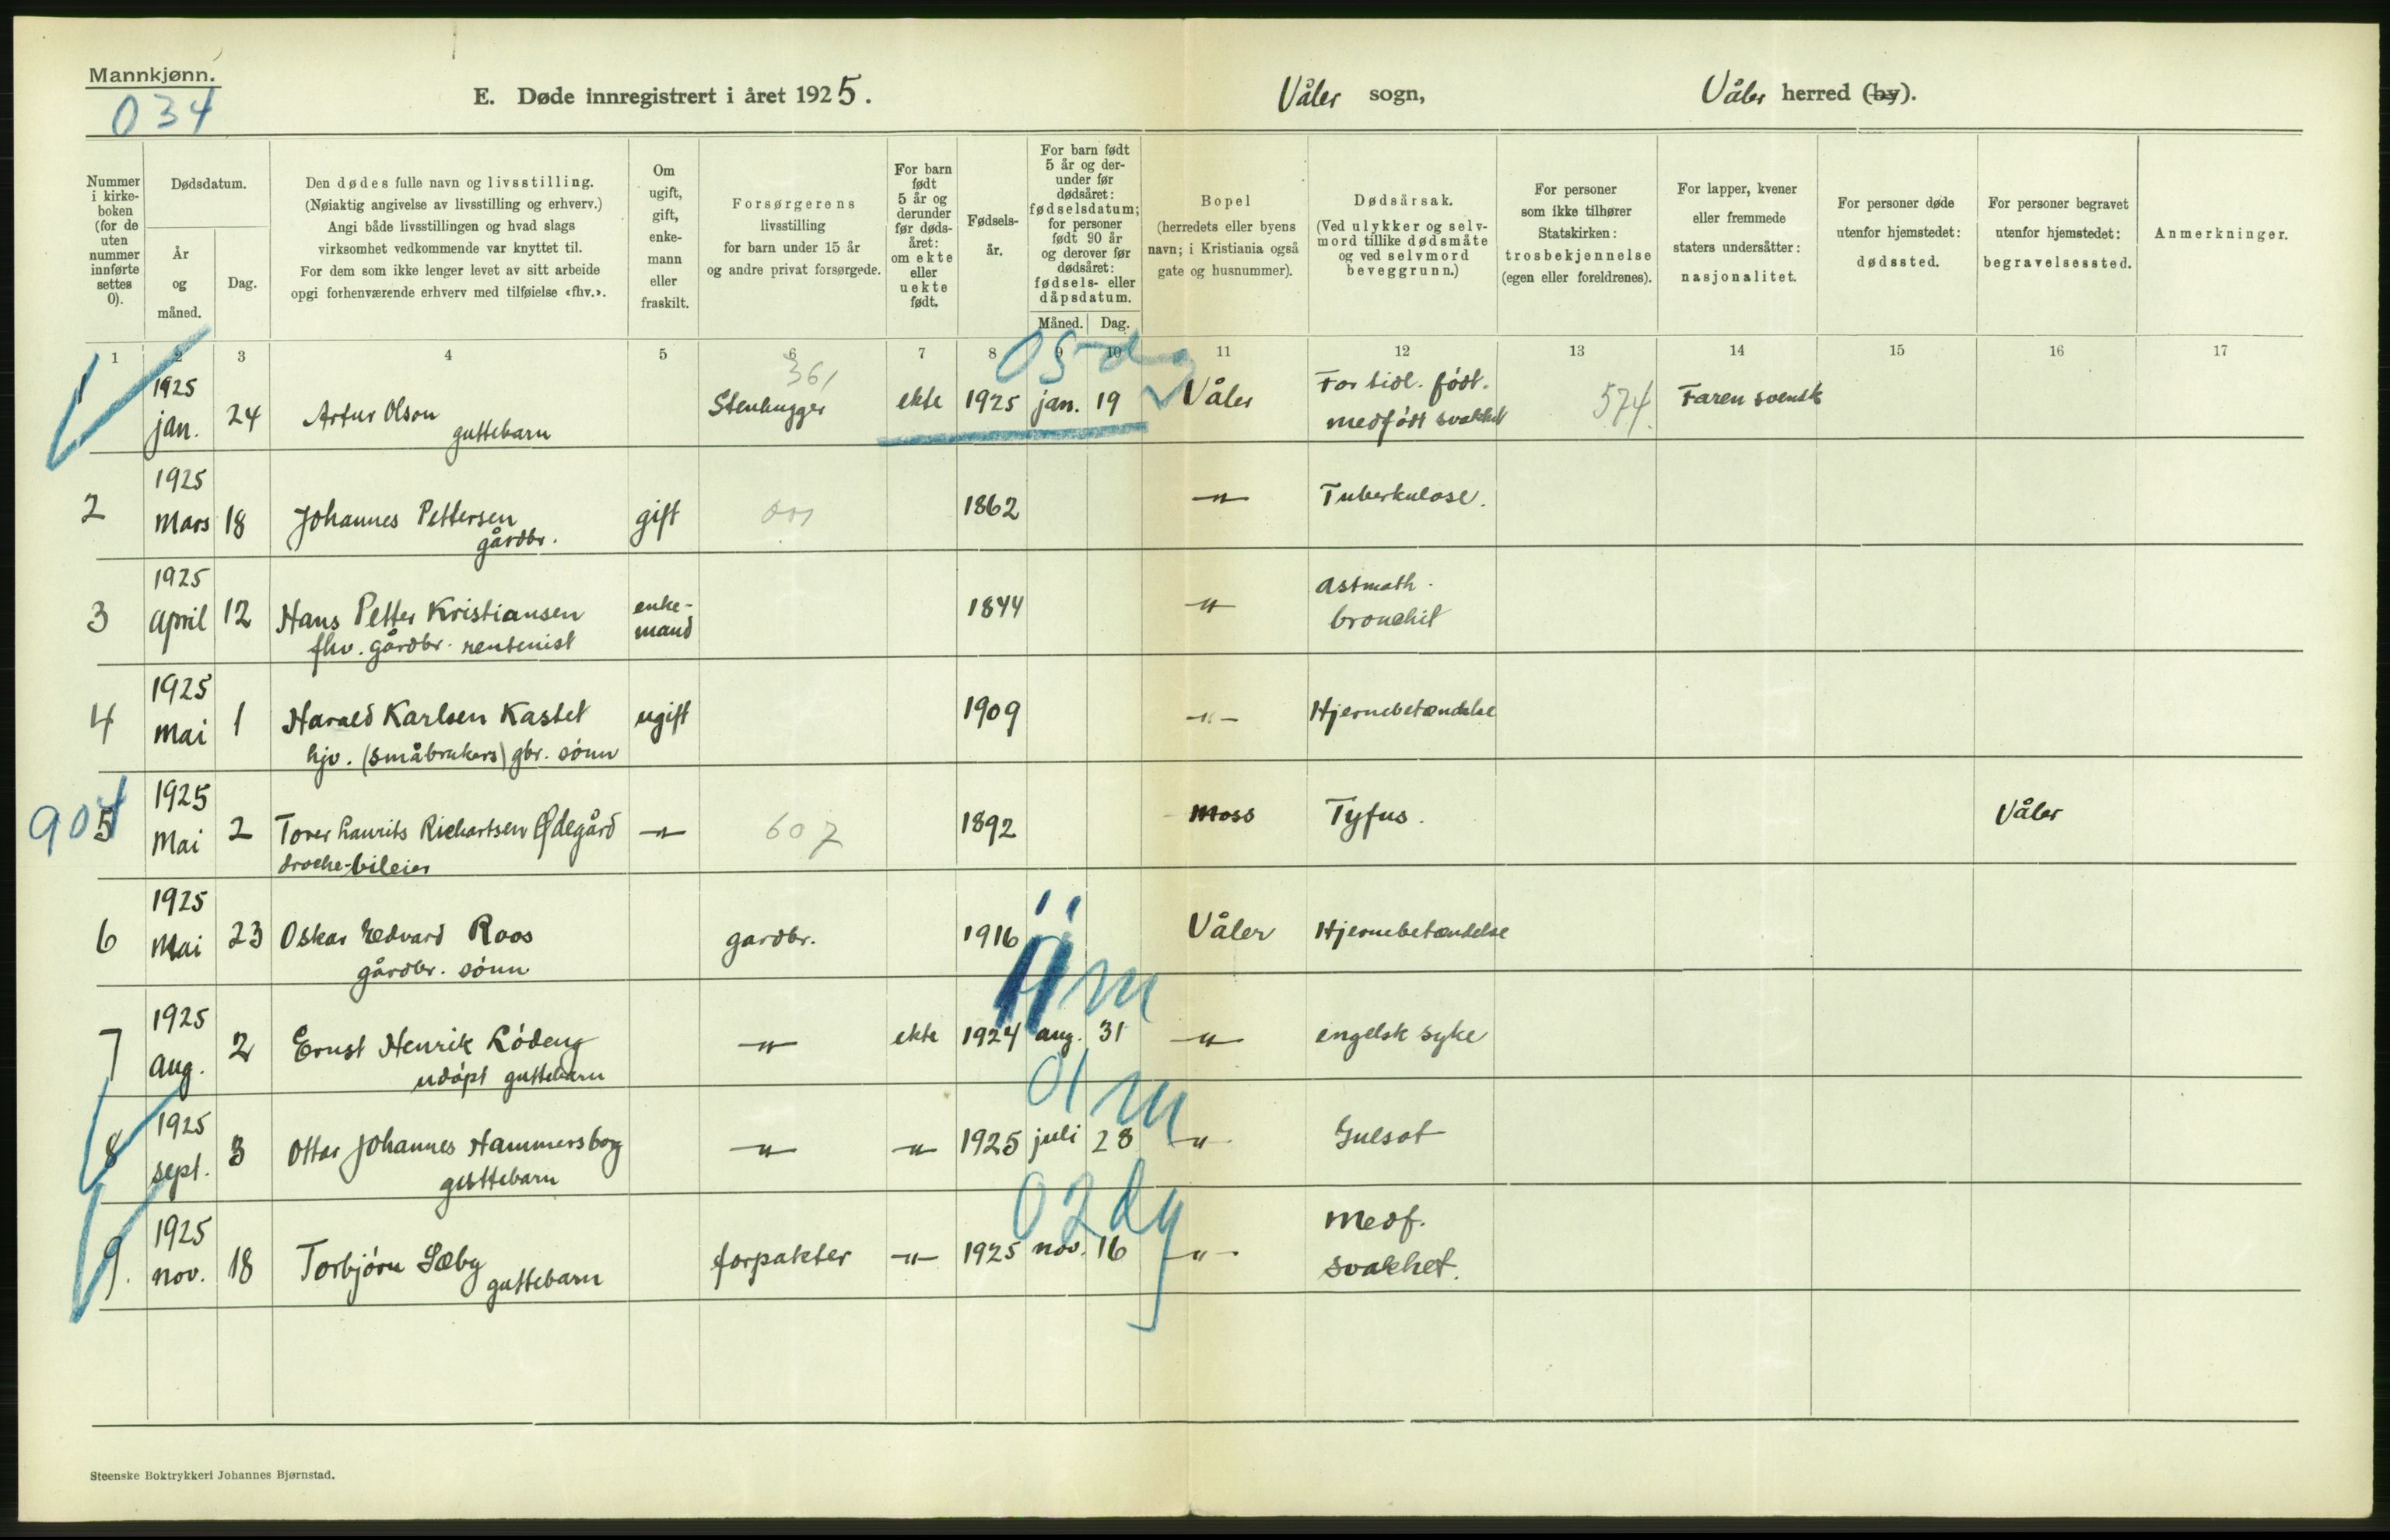 Mannkjønn.
034
E. Døde innregistrert i året 1925.
Våler sogn,
Våler herred (by).
Nummer i kirke- boken (for de uten nummer innførte settes 0).
Dødsdatum.
År og måned.
Dag.
Den dødes fulle navn og livsstilling.
(Nøiaktig angivelse av livsstilling og erhverv.)
Angi både livsstillingen og hvad slags
virksomhet vedkommende var knyttet til.
For dem som ikke lenger levet av sitt arbeide
opgi forhenværende erhverv med tilføielse «fhv.».
Om ugift, gift, enke- mann eller fraskilt.
Forsørgerens
livsstilling
for barn under 15 år
og andre privat forsørgede.
For barn født 5 år og derunder før døds- året: om ekte eller uekte født.
Fødsels- år.
For barn født 5 år og der- under før dødsåret: fødselsdatum; for personer født 90 år og derover før dødsåret: fødsels- eller dåpsdatum.
Måned. Dag.
Bopel
(herredets eller byens
navn; i Kristiania også
gate og husnummer).
Dødsårsak.
(Ved ulykker og selv-
mord tillike dødsmåte
og ved selvmord
beveggrunn.)
For personer
som ikke tilhører
Statskirken:
trosbekjennelse
(egen eller foreldrenes).
For lapper, kvener
eller fremmede
staters undersåtter:
nasjonalitet.
For personer døde
utenfor hjemstedet:
dødssted.
For personer begravet
utenfor hjemstedet:
begravelsessted.
Anmerkninger.
1 2 3 4 5 6 7 8 9 10 11 12 13 14 15 16 17
361 05 dg
1 1925 jan. 24 Artur Olson guttebarn Stenhugger ekte 1925 jan. 19 Våler For tidl. født. medfødt svakhet 574. Faren svensk
2 1925 Mars 18 Johannes Pettersen gårdbr. gift 1862 -"- Tuberkulose.
3 1925 April 12 Hans Petter Kristiansen fhv. gårdbr. rentenist enke- mand 1844 -"- Astmath. bronchit
4 1925 Mai 1 Harald Karlsen Kastet hjv. (småbrukers) gbr. sønn ugift 1909 -"- Hjernebetændelse
907
5 1925 Mai 2 Tover Laurits Richartsen Ødegård droche-bileier -"- 607 1892 Moss Tyfus. Våler
6 1925 Mai 23 Oskar Edvard Roos gårdbr. sønn gardbr. 1916 Våler Hjernebetændelse
11 m
7 1925 Aug. 2 Ernst Henrik Lødeng udøpt guttebarn -"- ekte 1924 aug. 31 -"- engelsk syke
01 m
8 1925 sept. 3 Ottar Johannes Hammersbog guttebarn -"- -"- 1925 juli 28 -"- Gulsot
02 dg
9. 1925 nov. 18 Torbjørn Sæby guttebarn forpakter -"- 1925 nov. 16 -"- Medf. svakhet.
Steenske Boktrykkeri Johannes Bjørnstad.